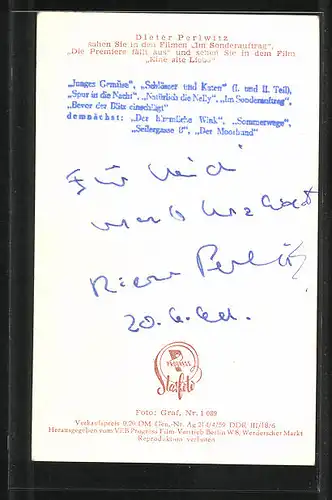 Dieter Perlwitz
sehen Sie in den Filmen „Im Sonderauftrag",
„Die Premiere fällt aus" und sehen Sie in dem Film
„Eine alte Liebe"
„Junges Gemüse", „Schlösser und Katen" (I. und II. Teil),
„Spur in die Nacht", „Natürlich die Nelly", „Im Sonderauftrag",
„Bevor der Blitz einschlägt"
demnächst: „Der himmlische Wink", „Sommerwege",
„Seilergasse 8", „Der Moorhund"
Für
Perlwitz
20.6.
Starfoto
Foto: Graf, Nr. 1 089
Verkaufspreis 0,20 DM Gen.-Nr. Ag 214/4/59 DDR III/18/6
Herausgegeben vom VEB Progress Film-Vertrieb Berlin W 8, Werderscher Markt
Reproduktion verboten